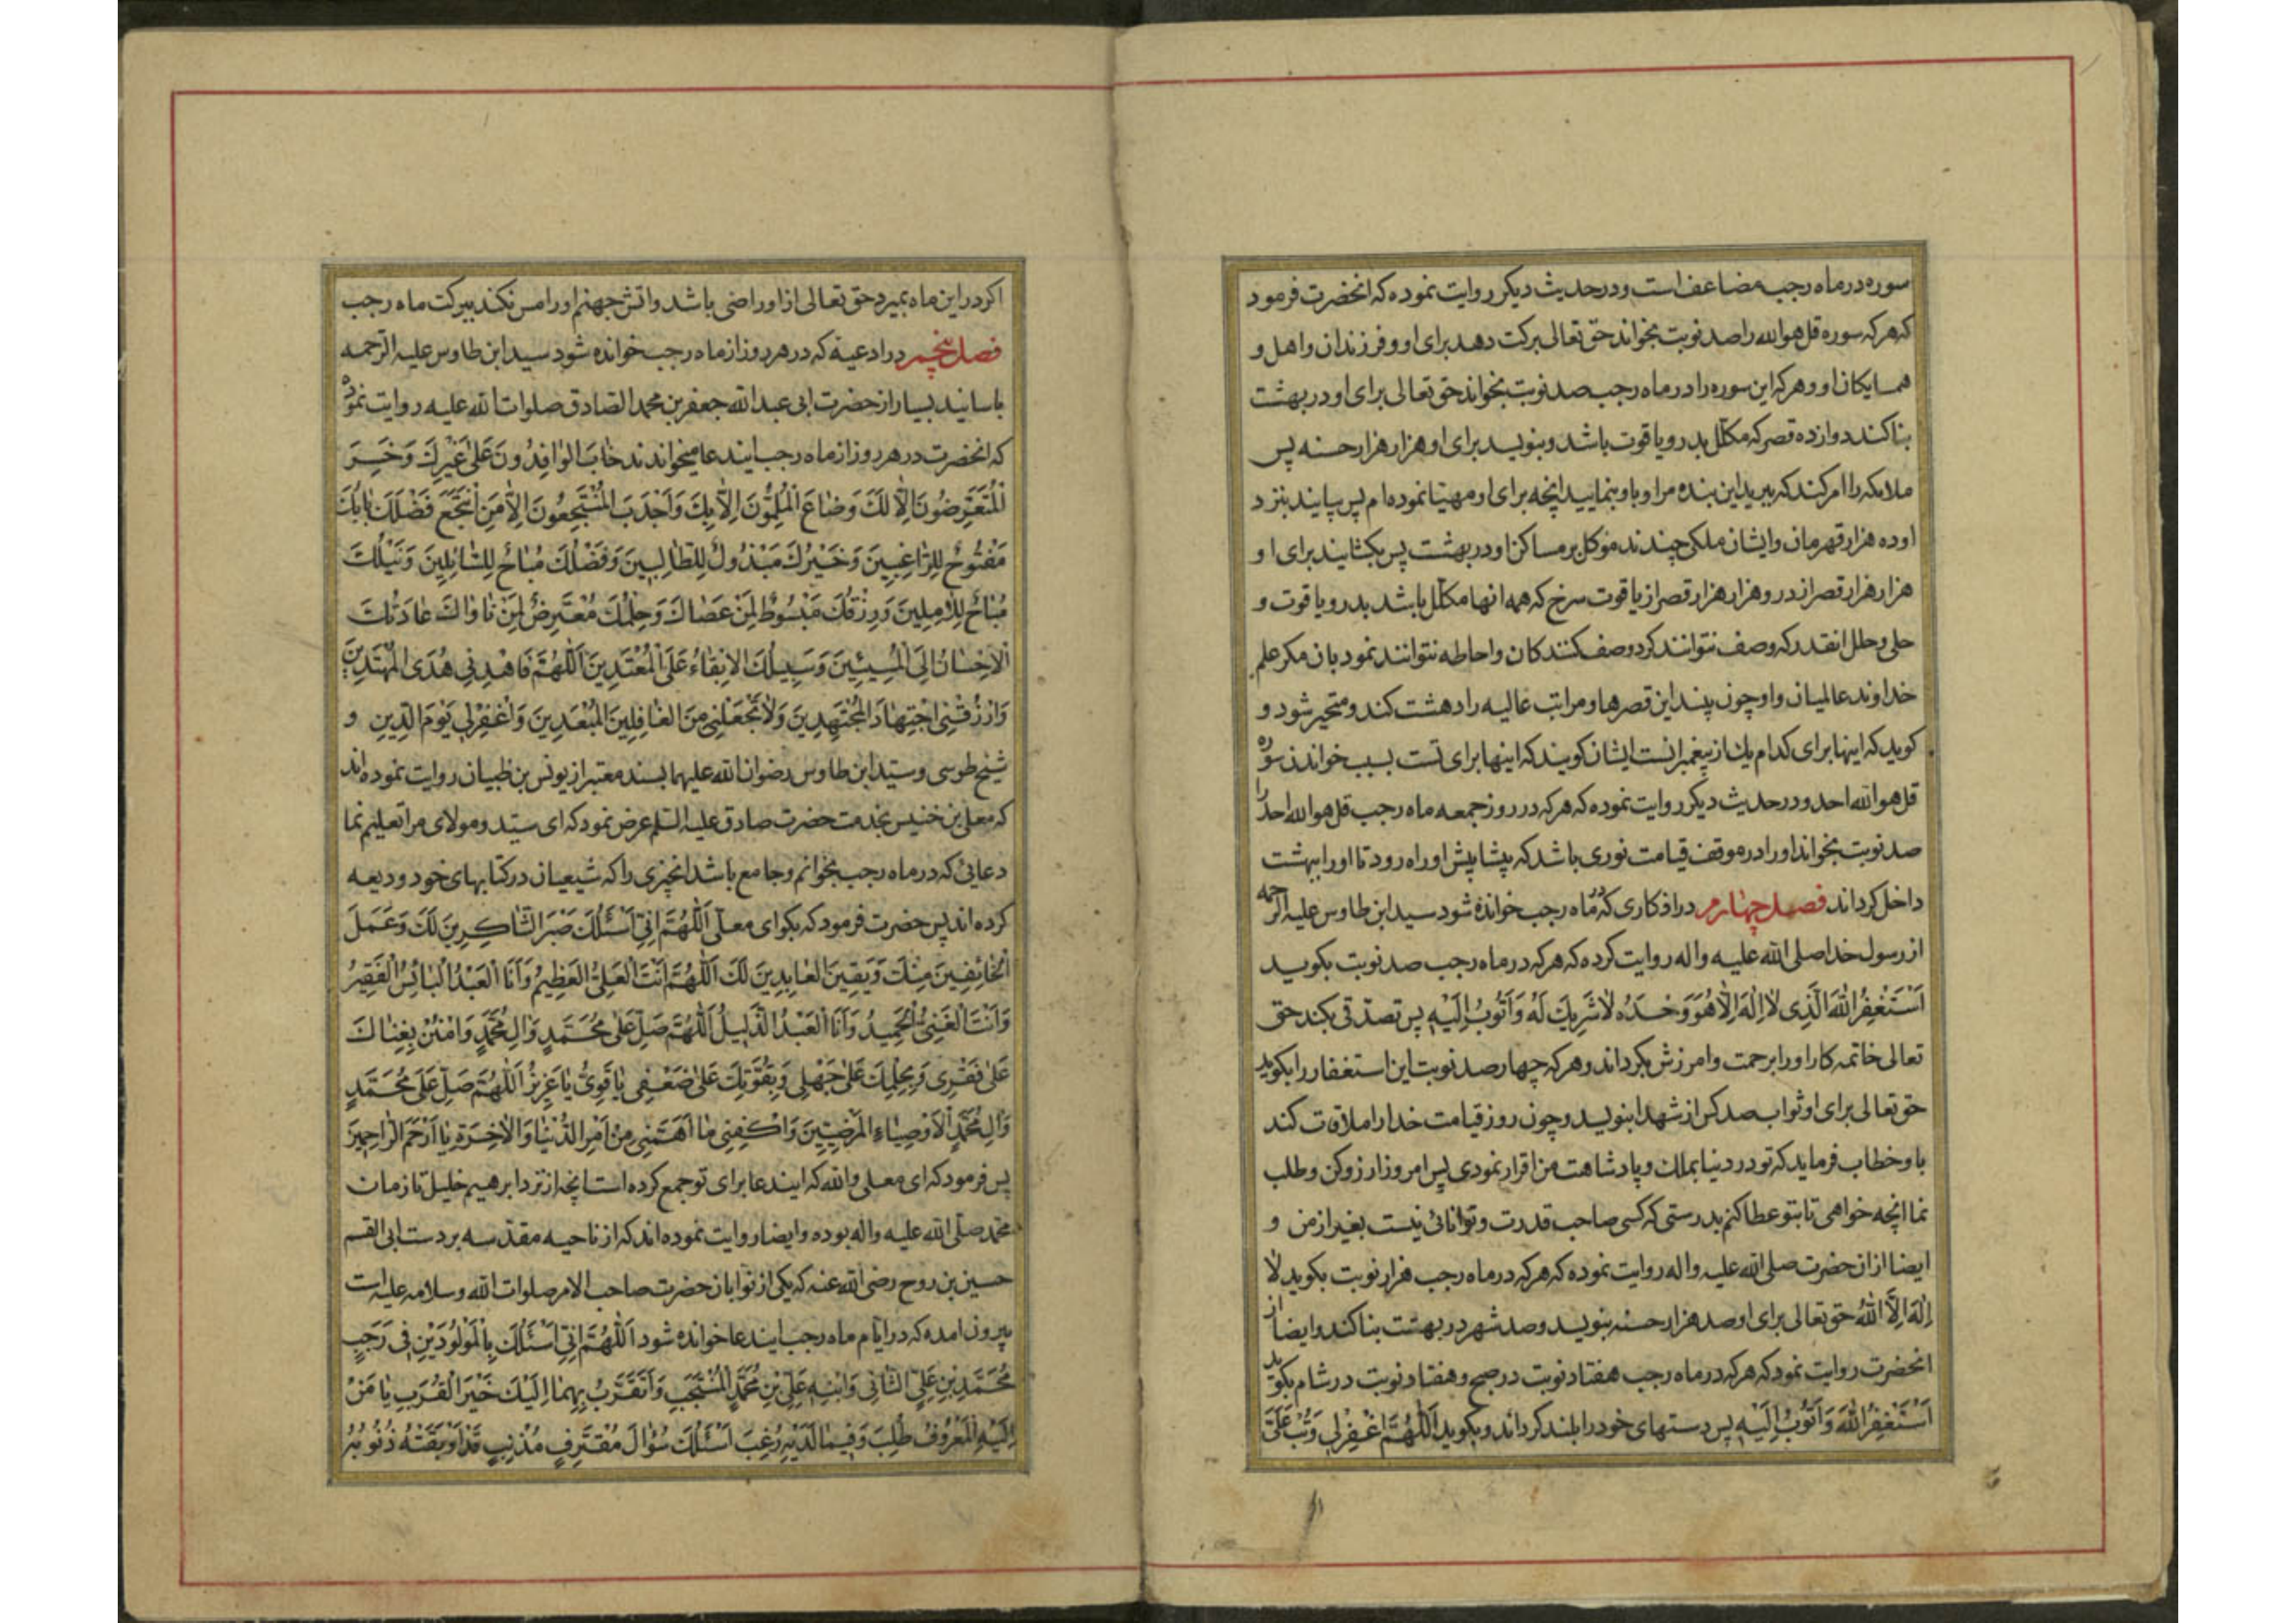 سوره در ماه رجب مضاعف است و در حدیث دیکر روایت نموده که انحضرت فرمود
که هر که سوره قل هو الله را صد نوبت بخواند حقّ تعالی برکت دهد برای او و فرزندان و اهل و
همسایکان او و هر که این سوره را در ماه رجب صد نوبت بخواند حق تعالی برای او در بهشت
بنا کند دوازده قصر که مکلّل بدر و یاقوت باشد و بنویسد برای او هزار هزار حسنه پس
ملایکه را امر کند که ببرید این بنده مرا و باو بنمایید انچه برای او مهیّا نموده ام پس بیایند بنزد
او ده هزار قهرمان و ایشان ملکی چندند موکل بر مساکن او در بهشت پس بکشایند برای او
هزار هزار قصر از در و هزار هزار قصر از یاقوت سرخ که همه انها مکلّل باشد بدر و یاقوت و
حلی و حلل انقدر که وصف نتوانند کرد وصف کنندکان و احاطه نتوانند نمود بان مکر علم
خداوند عالمیان و او چون بیند این قصرها و مراتب عالیه را دهشت کند و متحیر شود و
کوید که اینها برای کدام یك از پیغمبرانست ایشان کویند که اینها برای تست بسبب خواندن سوره
قل هو الله احد و در حدیث دیکر روایت نموده که هر که در روز جمعه ماه رجب قل هو الله احد را
صد نوبت بخواند او را در موقف قیامت نوری باشد که پیشاپیش او راه رود تا او را ببهشت
داخل کرداند فصل چهارم در اذکاری که در ماه رجب خوانده شود سید ابن طاوس علیه الرحمه
از رسول خدا صلی الله علیه و اله روایت کرده که هر که در ماه رجب صد نوبت بکوید
اَسْتَغْفِرُ اللهَ الَّذِی لٰا اِلٰهَ اِلّٰا هُوَ وَحْدَهُ لٰا شَرِیكَ لَهُ وَ اَتُوبُ اِلَیْهِ پس تصدّقی بکند حق
تعالی خاتمه کار او را برحمت و امرزش بکرداند و هر که چهار صد نوبت این استغفار را بکوید
حق تعالی برای او ثواب صد کس از شهدا بنویسد و چون روز قیامت خدا را ملاقات کند
باو خطاب فرماید که تو در دنیا بملك و پادشاهت من اقرار نمودی پس امروز ارزو کن و طلب
نما انچه خواهی تا بتو عطا کنم بدرستی که کسی صاحب قدرت و توانائی نیست بغیر از من و
ایضا از ان حضرت صلی الله علیه و اله روایت نموده که هر که در ماه رجب هزار نوبت بکوید لٰا
اِلٰهَ اِلَّا اللهُ حق تعالی برای او صد هزار حسنه بنویسد و صد شهر در بهشت بنا کند و ایضا از
انحضرت روایت نمود که هر که در ماه رجب هفتاد نوبت در صبح و هفتاد نوبت در شام بکوید
اَسْتَغْفِرُ اللهَ وَ اَتُوبُ اِلَیْهِ پس دستهای خود را بلند کرداند و بکوید اَللّٰهُمَّ اغْفِرْلِی وَ تُبْ عَلَیَّ
اکر در این ماه بمیرد حق تعالی از او راضی باشد و اتش جهنم او را مس نکند ببرکت ماه رجب
فصل پنجم در ادعیهٔ که در هر روز از ماه رجب خوانده شود سید ابن طاوس علیه الرحمه
باسانید بسیار از حضرت ابی عبد الله جعفر بن محمد الصّادق صلوات الله علیه روایت نموده
که انحضرت در هر روز از ماه رجب ایندعا میخواندند خٰابَ الوٰافِدُونَ عَلیٰ غَیْرِكَ وَ خَسِرَ
الْمُتَعَرِّضُونَ اِلّٰا لَكَ وَ ضٰاعَ الْمُلِمُّونَ اِلّٰا بِكَ وَ اَجْدَبَ الْمُنْتَجِعُونَ اِلّٰا مَنِ انْتَجَعَ فَضْلَكَ بٰابُكَ
مَفْتُوحٌ لِلرّٰاغِبِینَ وَ خَیْرُكَ مَبْذُولٌ لِلطّٰالِبِینَ وَ فَضْلُكَ مُبٰاحٌ لِلسّٰائِلِینَ وَ نَیْلُكَ
مُبٰاحٌ لِلْاٰمِلِینَ وَ رِزْقُكَ مَبْسُوطٌ لِمَنْ عَصٰاكَ وَ حِلْمُكَ مُعْتَرِضٌ لِمَنْ نٰاوٰاكَ عٰادَتُكَ
الْاِحْسٰانُ اِلَی الْمُسِیئِینَ وَ سَبِیلُكَ الْاِبْقٰاءُ عَلَی الْمُعْتَدِینَ اَللّٰهُمَّ فَاهْدِنِی هُدَی الْمُهْتَدِینَ
وَ ارْزُقْنِی اجْتِهٰادَ الْمُجْتَهِدِینَ وَ لٰا تَجْعَلْنِی مِنَ الْغٰافِلِینَ الْمُبْعَدِینَ وَ اغْفِرْلِی یَوْمَ الدِّینِ و
شیخ طوسی و سیّد ابن طاوس رضوان الله علیهما بسند معتبر از یونس بن ظبیان روایت نموده اند
که معلی بن خنیس بخدمت حضرت صادق علیه السّلم عرض نمود که ای سیّد و مولای من مرا تعلیم نما
دعائی که در ماه رجب بخوانم و جامع باشد انچیزی را که شیعیان در کتابهای خود ودیعه
کرده اند پس حضرت فرمود که بکو ای معلّی اَللّٰهُمَّ اِنِّی اَسْئَلُكَ صَبْرَ الشّٰاکِرِینَ لَكَ وَ عَمَلَ
الْخٰائِفِینَ مِنْكَ وَ یَقِینَ الْعٰابِدِینَ لَكَ اَللّٰهُمَّ اَنْتَ الْعَلِیُّ الْعَظِیمُ وَ اَنَا الْعَبْدُ الْبٰائِسُ الْفَقِیرُ
وَ اَنْتَ الْغَنِیُّ الْحَمِیدُ وَ اَنَا الْعَبْدُ الذَّلِیلُ اَللّٰهُمَّ صَلِّ عَلیٰ مُحَمَّدٍ وَ اٰلِ مُحَمَّدٍ وَ امْنُنْ بِغِنٰاكَ
عَلیٰ فَقْرِی وَ بِحِلْمِكَ عَلیٰ جَهْلِی وَ بِقُوَّتِكَ عَلیٰ ضَعْفِی یٰا قَوِیُّ یٰا عَزِیزُ اَللّٰهُمَّ صَلِّ عَلیٰ مُحَمَّدٍ
وَ اٰلِ مُحَمَّدٍ الْاَوْصِیٰاءِ الْمَرْضِیِّینَ وَ اکْفِنِی مٰا اَهَمَّنِی مِنْ اَمْرِ الدُّنْیٰا وَ الْاٰخِرَةِ یٰا اَرْحَمَ الرّٰاحِمِینَ
پس فرمود که ای معلی والله که ایندعا برای تو جمع کرده است انچه از نزد ابرهیم خلیل تا زمان
محمد صلّی الله علیه و اله بوده و ایضا روایت نموده اند که از ناحیه مقدّسه بر دست ابی القسم
حسین بن روح رضی الله عنه که یکی از نوّابان حضرت صاحب الامر صلوات الله و سلامه علیه است
بیرون امده که در ایّام ماه رجب ایندعا خوانده شود اَللّٰهُمَّ اِنِّی اَسْئَلُكَ بِالْمَوْلُودَیْنِ فِی رَجَبٍ
مُحَمَّدِ بْنِ عَلِیٍّ الثّٰانِی وَ ابْنِهِ عَلِیِّ بْنِ مُحَمَّدٍ الْمُنْتَجَبِ وَ اَتَقَرَّبُ بِهِمٰا اِلَیْكَ خَیْرَ الْقُرَبِ یٰا مَنْ
اِلَیْهِ الْمَعْرُوفُ طُلِبَ وَ فِیمٰا لَدَیْهِ رُغِبَ اَسْئَلُكَ سُؤٰالَ مُقْتَرِفٍ مُذْنِبٍ قَدْ اَوْبَقَتْهُ ذُنُوبُهُ